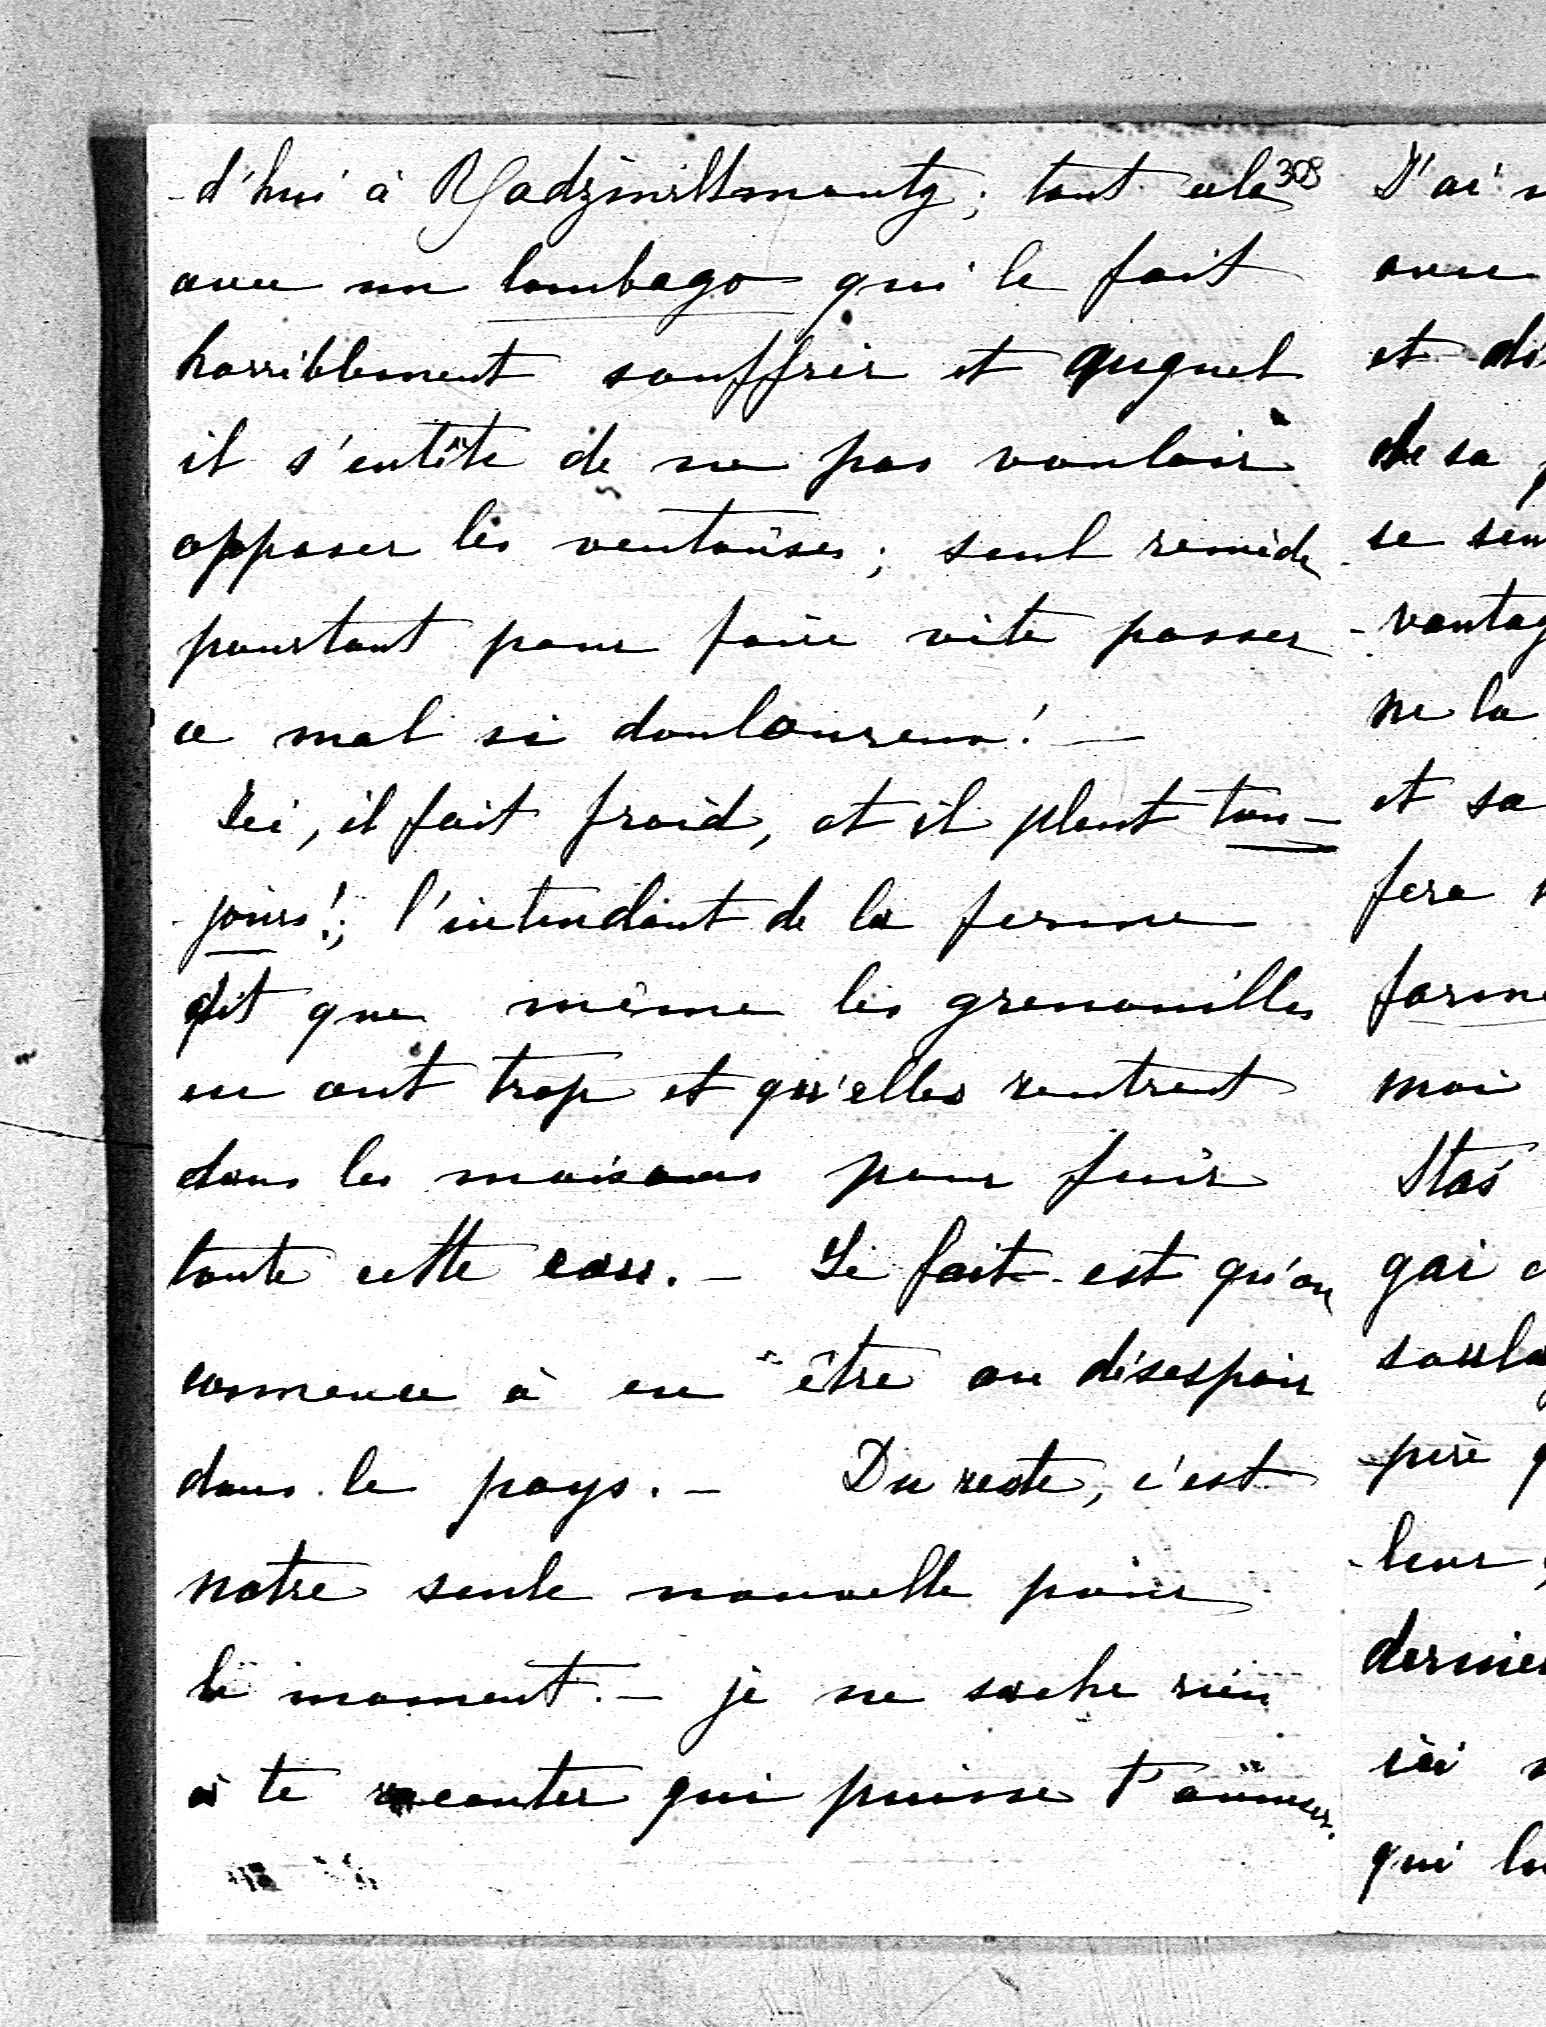 -d'hui à Radziwillmonty; tout cela 308
avec un lombago qui le fait
horriblement souffrir et auquel
il s'entête de ne pas vouloir
opposer les ventouses; seul remède
pourtant pour faire vite passer
ce mal si douloureux! —
Ici, il fait froid, et il pleut tou-
-jours!; l'intendant de la ferme
dit que même les grenouilles
en ont trop et qu'elles rentrent
dans les maisons pour fuir
toute cette eau. – Le fait est qu'on
commence à en être au désespoir
dans le pays. – Du reste, c'est
notre seule nouvelle pour
le moment. – je ne sache rien
à te raconter qui puisse t'amuser.
J'ai
avec
et
de sa
se
-vantag
ne la
et sa
fera
ferme
moi
Stas
gai
soula
père
-leur
dernier
ici
qui